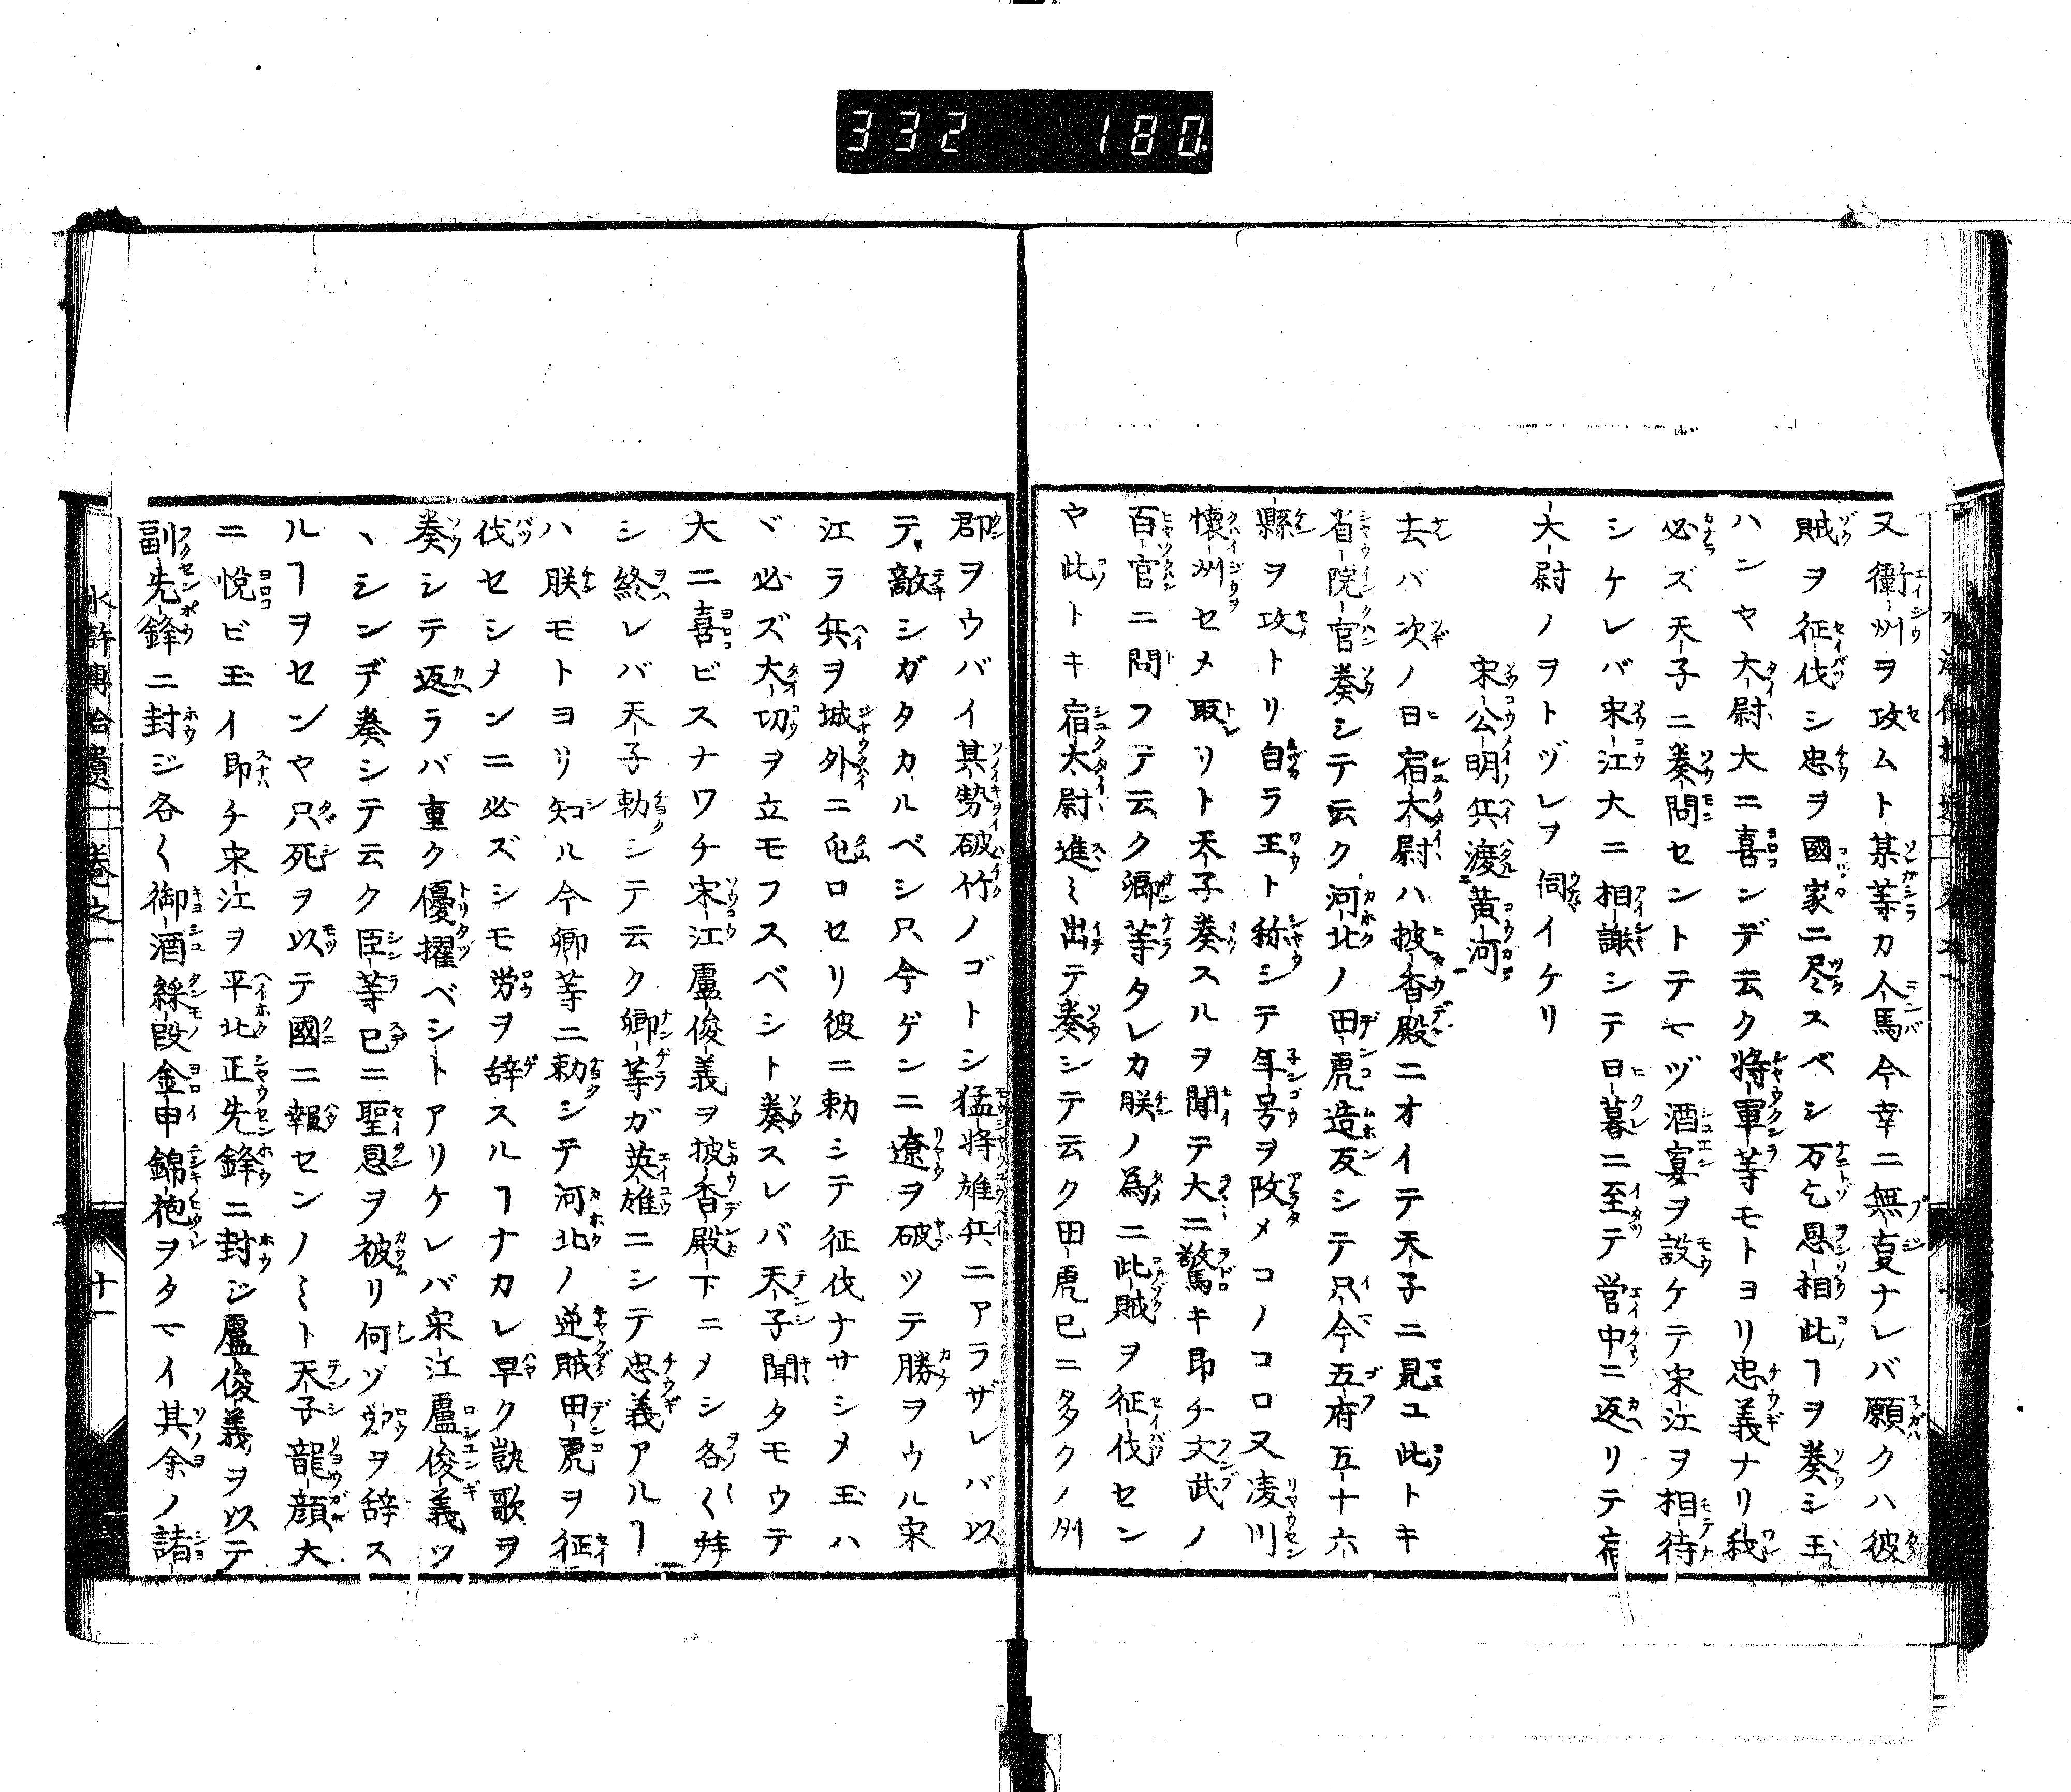 332 180.
又衛州ヲ攻ムト某等カ人馬今幸ニ無夏ナレバ願クハ彼
賊ヲ征伐シ忠ヲ國家ニ尽スベシ万乞恩相此ヿヲ奏シ玉
ハンヤ大尉大ニ喜ンデ云ク將軍等モトヨリ忠義ナリ我
必ズ天子ニ奏問セントテマヅ酒宴ヲ設ケテ宋江ヲ相待
シケレバ宋江大ニ相謝シテ日暮ニ至テ営中ニ返リテ宿
大尉ノヲトヅレヲ伺イケリ
宋公明兵渡黄河
去バ次ノ日宿太尉ハ披香殿ニオイテ天子ニ見ユ此トキ
省院官奏シテ云ク河北ノ田虎造反シテ只今五府五十六
縣ヲ攻トリ自ラ王ト称シテ年号ヲ改メコノコロ又凌川
懐州セメ取リト天子奏スルヲ聞テ大ニ驚キ即チ文武ノ
百官ニ問フテ云ク卿等タレカ朕ノ為ニ此賊ヲ征伐セン
ヤ此トキ宿太尉進ミ出テ奏シテ云ク田虎已ニ多クノ州
郡ヲウバイ其勢破竹ノゴトシ猛将雄兵ニアラザレバ以
テ敵シガタカルベシ只今ゲンニ遼ヲ破ツテ勝ヲウル宋
江ラ兵ヲ城外ニ屯ロセリ彼ニ勅シテ征伐ナサシメ玉ハ
ヾ必ズ大切ヲ立モフスベシト奏スレバ天子聞タモウテ
大ニ喜ビスナワチ宋江盧俊義ヲ披香殿下ニメシ各〱拜
シ終レバ天子勅シテ云ク卿等ガ英雄ニシテ忠義アルヿ
ハ朕モトヨリ知ル今卿等ニ勅シテ河北ノ逆賊田虎ヲ征
伐セシメンニ必ズシモ労ヲ辞スルヿナカレ早ク凱歌ヲ
奏シテ返ラバ重ク優擢ベシトアリケレバ宋江盧俊義ツ
ヽシンデ奏シテ云ク臣等已ニ聖恩ヲ被リ何ゾ労ヲ辞ス
ルヿヲセンヤ只死ヲ以テ國ニ報センノミト天子龍顔大
ニ悦ビ玉イ即チ宋江ヲ平北正先鋒ニ封ジ盧俊義ヲ以テ
副先鋒ニ封ジ各〱御酒綵段金甲錦袍ヲタマイ其余ノ諸
水滸傳拾遺 巻之一 十一